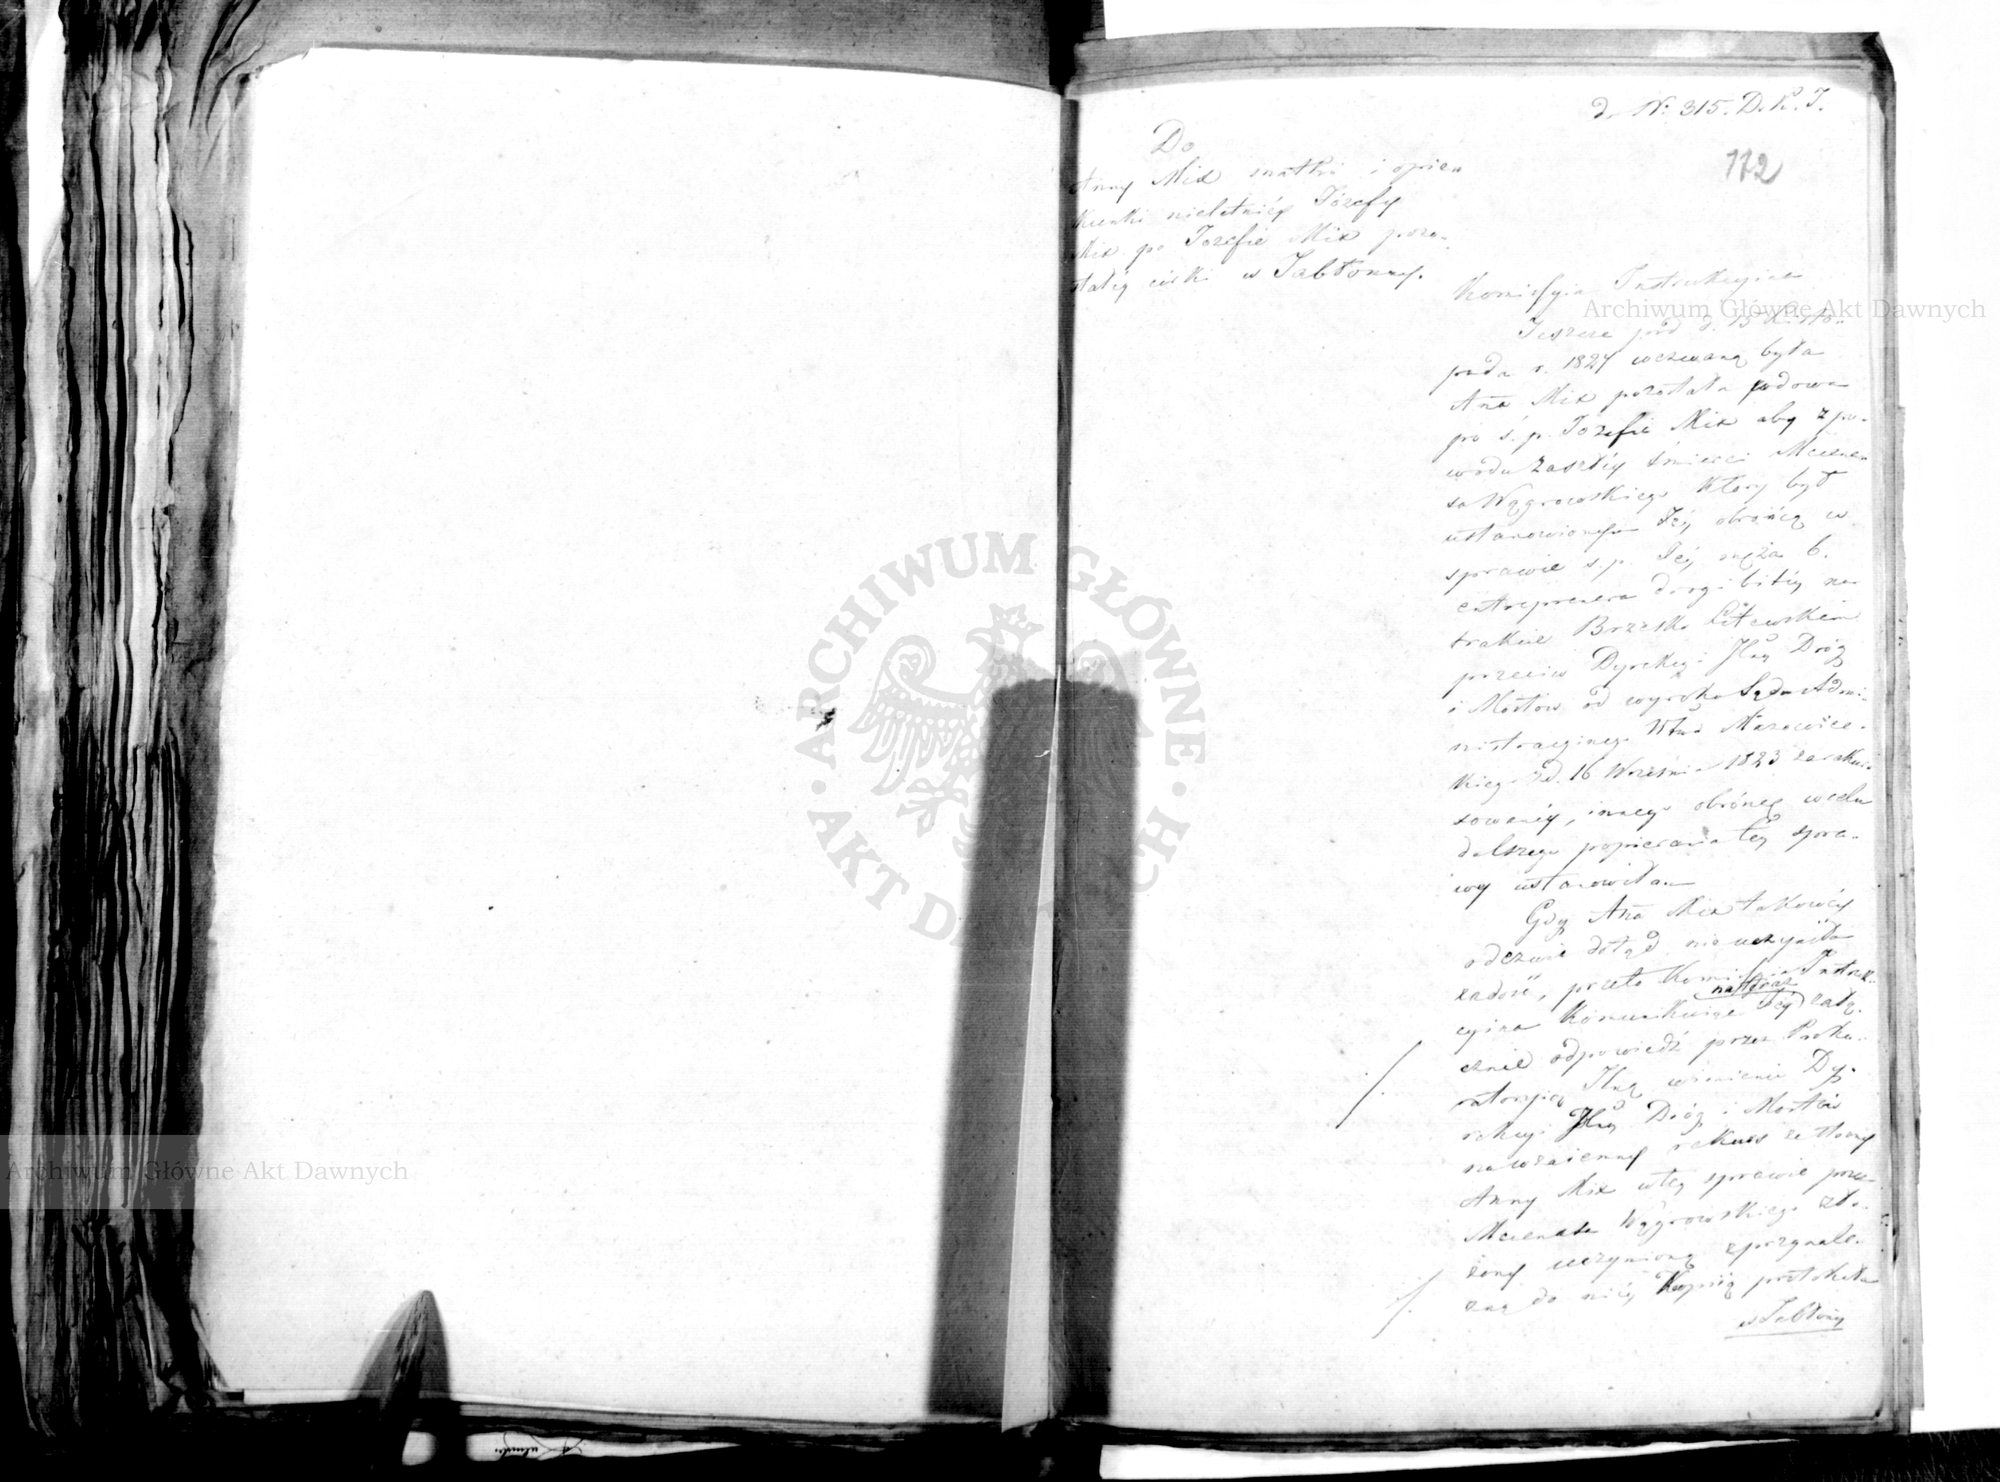 d. N. 315. D. K. I.
112
Do
Anny Mix matki i opie
kunki nieletniéy Józefy
Mix po Jozefie Mix pozo-
stałéy córki w Jabłonny.
Komissyia Instrukcyina
Jeszcze pod d. 15 Listo-
pada r. 1824 wezwaną była
Anna Mix pozostała wdowa
po ś. p. Jozefie Mix aby z po-
wodu zaszłéy śmierci Mecena
sa Wągrowskiego który był
ustanowionym Jéy obrońcą w
sprawie s. p. Jéy męża b.
entreprenera drogi bitéy na
trakcie Brzesko Litewskim
przeciw Dyrekcyi Jlnéy Dróg
i Mostów od wyroku Sądu Admi-
nistracyinego Wdwa Mazowiec-
kiego z d. 16 Września 1823 zarekur
sowanéy, innego obrońcę w celu
dalszego popierania téy spra-
wy ustanowiła.
Gdy Anna Mix takowéy
odezwie dotąd nie uczyniła
zadość, przeto Komissyia Instruk-
cyina komunikuiąc Jéy nateraz załą-
cznie odpowiedź przez Proku-
ratoryią Jlną w imieniu Dy-
rekcyi Jlnéy Dróg i Mostów
na wzaiemny rekurs ze strony
Anny Mix w téy sprawie przez
Mecenasa Wągrowskiego zło-
żony uczynioną z przynale-
żną do niéy kopiią protokułu
w Jabłonny
Archiwum Główne Akt Dawnych
Archiwum Główne Akt Dawnych
ARCHIWUM GŁÓWNE
AKT D CH